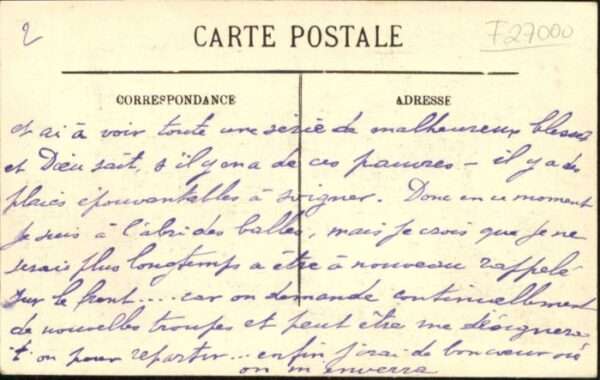 2
F27000
CARTE POSTALE
CORRESPONDANCE
ADRESSE
et ai à voir toute une série de malheureux blessés
et Dieu sait, s'il y en a de ces pauvres – il y a des
plaies épouvantables à soigner. Donc en ce moment
je suis à l'abri des balles, mais je crois que je ne
serais plus longtemps a être à nouveau rappelé
sur le front.... car on demande continuellement
de nouvelles troupes et peut être me désignera
t on pour repartir... enfin j'irai de bon cœur où
on m'enverra